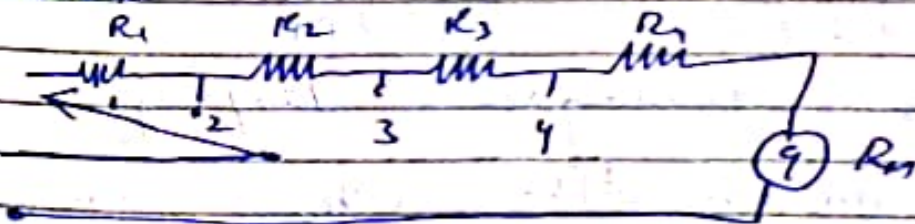 R₁ R₂ R₃ R₄
2 3 4
G Rm